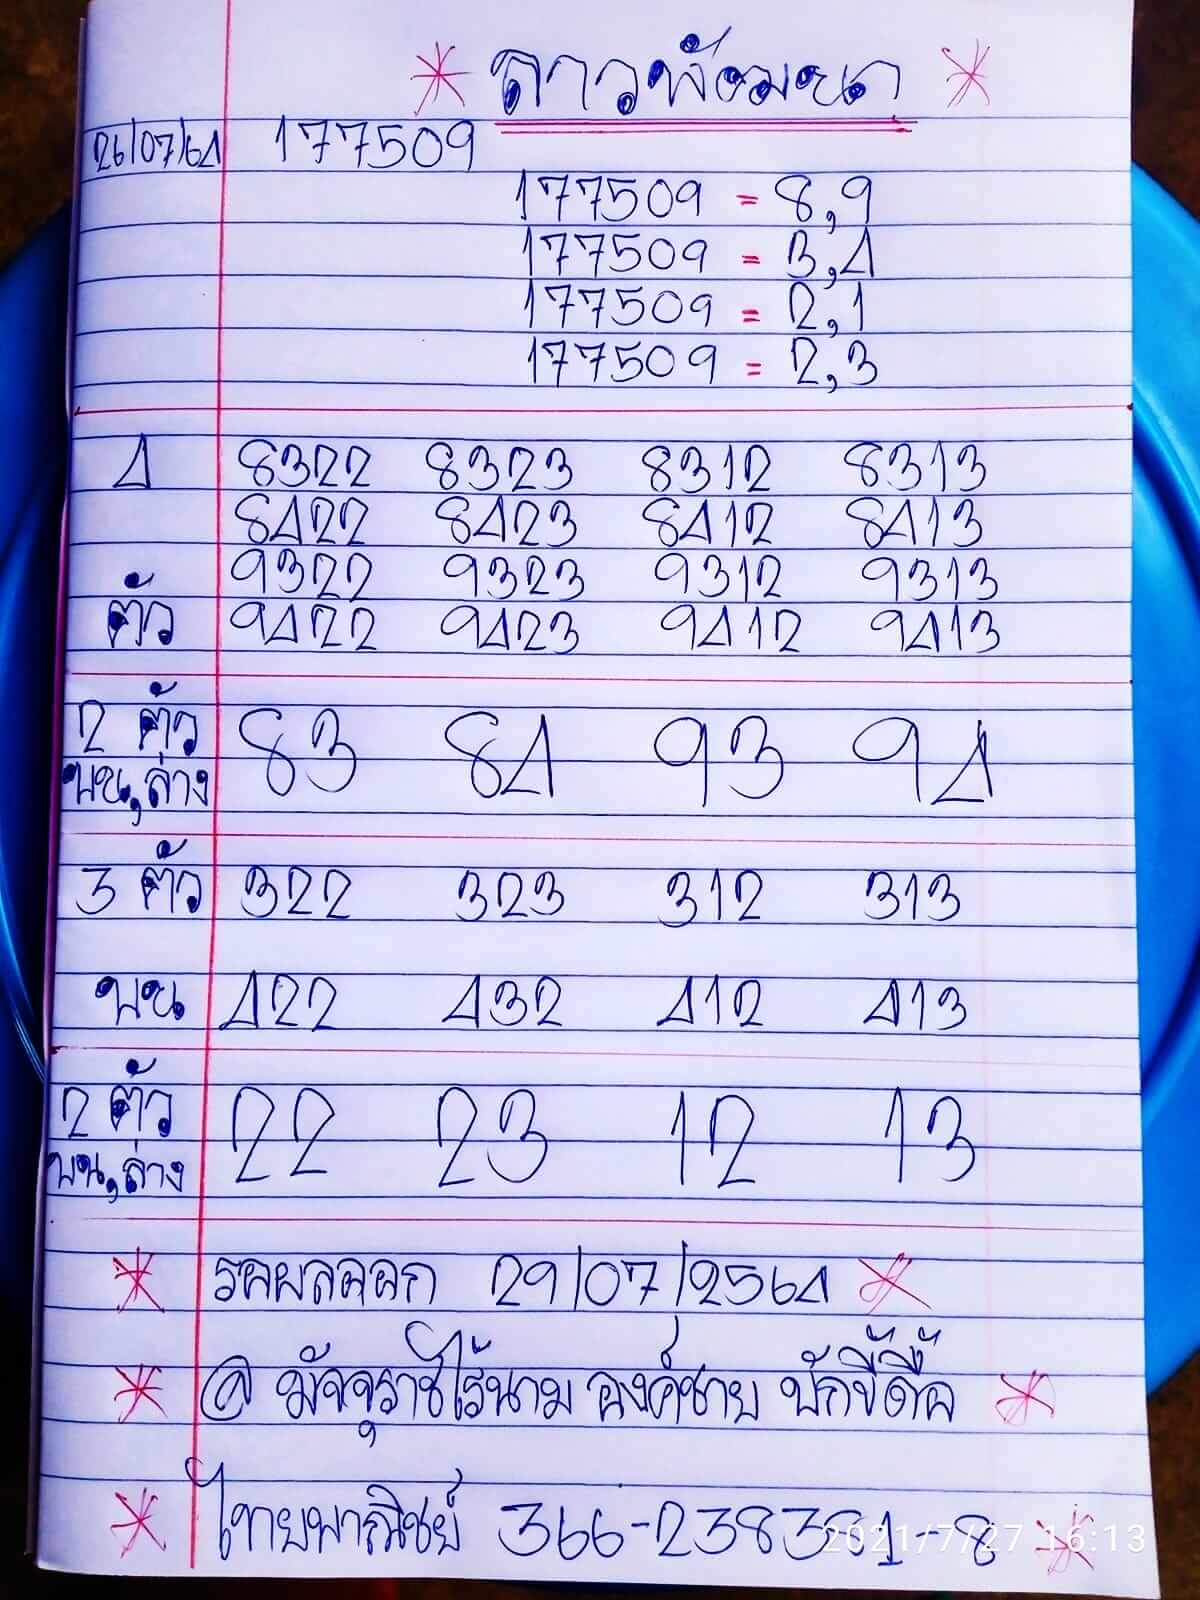 ดาวพัฒนา
26/07/64 177509
177509 = 8,9
177509 = 3,4
177509 = 2,1
177509 = 2,3
4 8322 8323 8312 8313
8422 8423 8412 8413
9322 9323 9312 9313
ตัว 9422 9423 9412 9413
2 ตัว 83 84 93 94
บน,ล่าง
3 ตัว 322 323 312 313
บน 422 432 412 413
2 ตัว 22 23 12 13
บน,ล่าง
รอผลออก 29/07/2564
@ มัจจุราชไร้นาม องค์ชาย บักขี้ดื้อ
ไทยพาณิชย์ 366-238381-8
2021/7/27 16:13